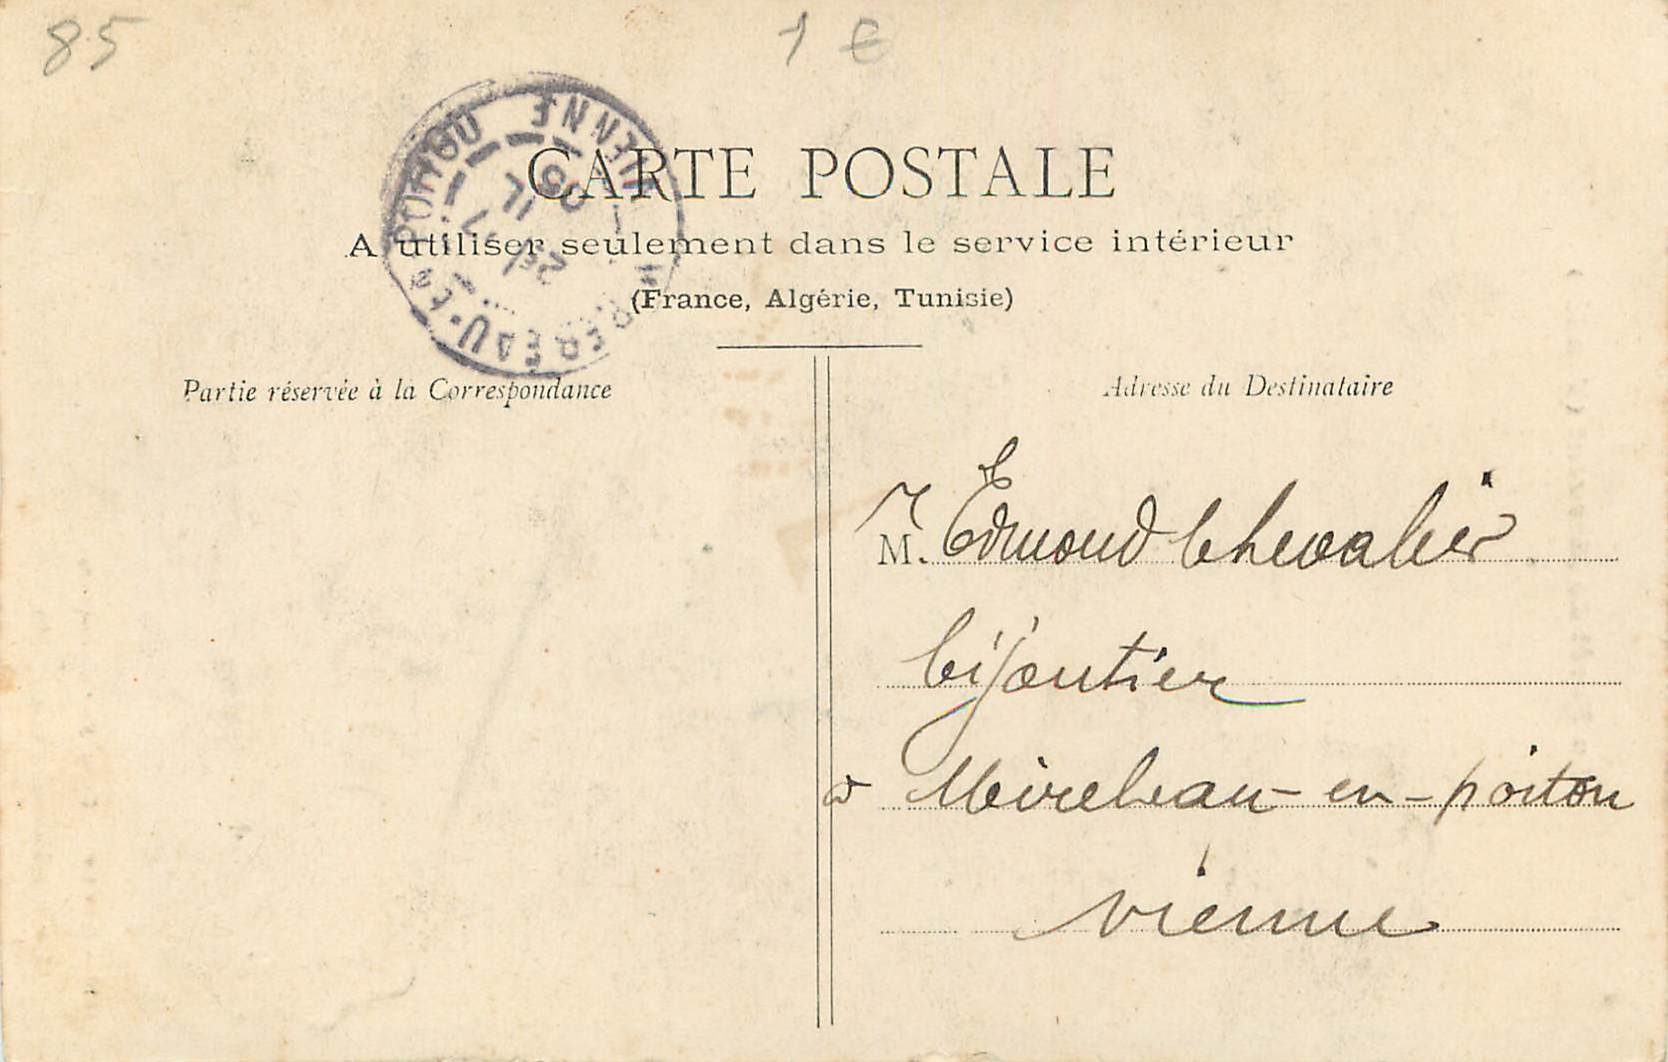 85
1 €
CARTE POSTALE
A utiliser seulement dans le service intérieur
(France, Algérie, Tunisie)
VIENNE
05
Partie réservée à la Correspondance
Adresse du Destinataire
M. Edmond Chevalier
bijoutier
à Mirebeau-en-poitou
Vienne